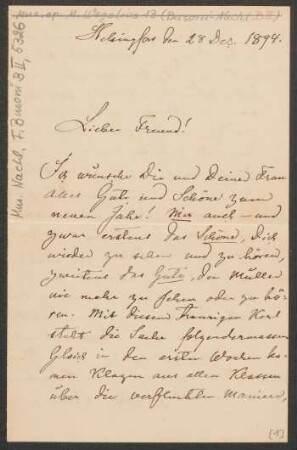 Mus. ep. M. Wegelius 13 (Busoni-Nachl. B II)
Mus. Nachl. F. Busoni B II, 5326
Helsingfors den 28 Dez. 1894.
Lieber Freund!
Ich wünsche Dir und Deiner Frau
alles Gute und Schöne zum
neuen Jahr! Mir auch – und
zwar erstens das Schöne, Dich
wieder zu sehen und zu hören,
zweitens das Gute, den Müller
nie mehr zu sehen oder zu hö-
ren. Mit diesem traurigen Kerl
steht die Sache folgendermassen
Gleich in den ersten Wochen ka-
men Klagen aus allen Klassen
über die verfluchten Manieren,
[1]